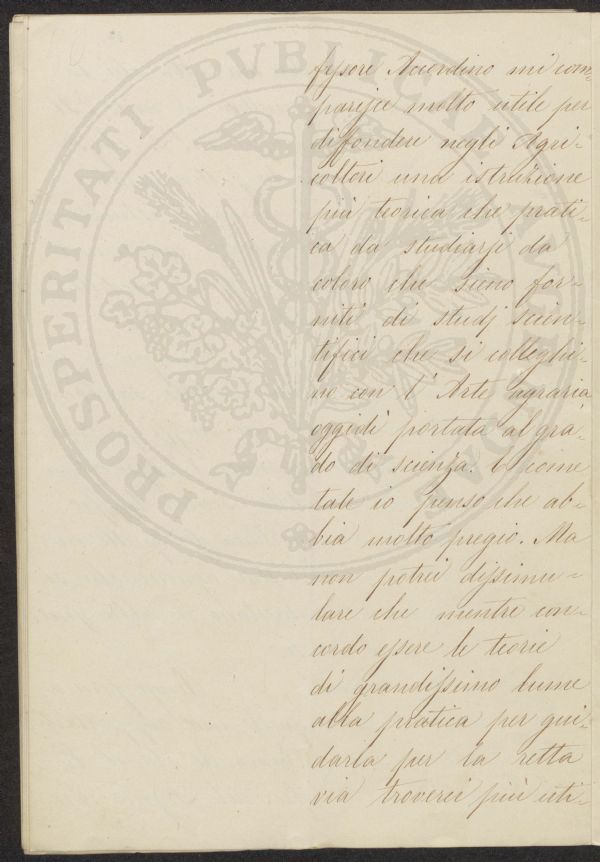 PROSPERITATI PVBLICAE
fessore Accordino mi com=
parisce molto utile per
diffondere negli Agri-
coltori una istruzione
più teorica che prati-
ca da studiarsi da
coloro che sieno for-
niti di studj scien-
tifici che si colleghi-
no con l'Arte agraria
oggidì portata al gra-
do di scienza. E come
tale io penso che ab-
bia molto pregio. Ma
non potrei dissimu-
lare che mentre con-
cordo essere le teorie
di grandissimo lume
alla pratica per gui-
darla per la retta
via troverei più uti-